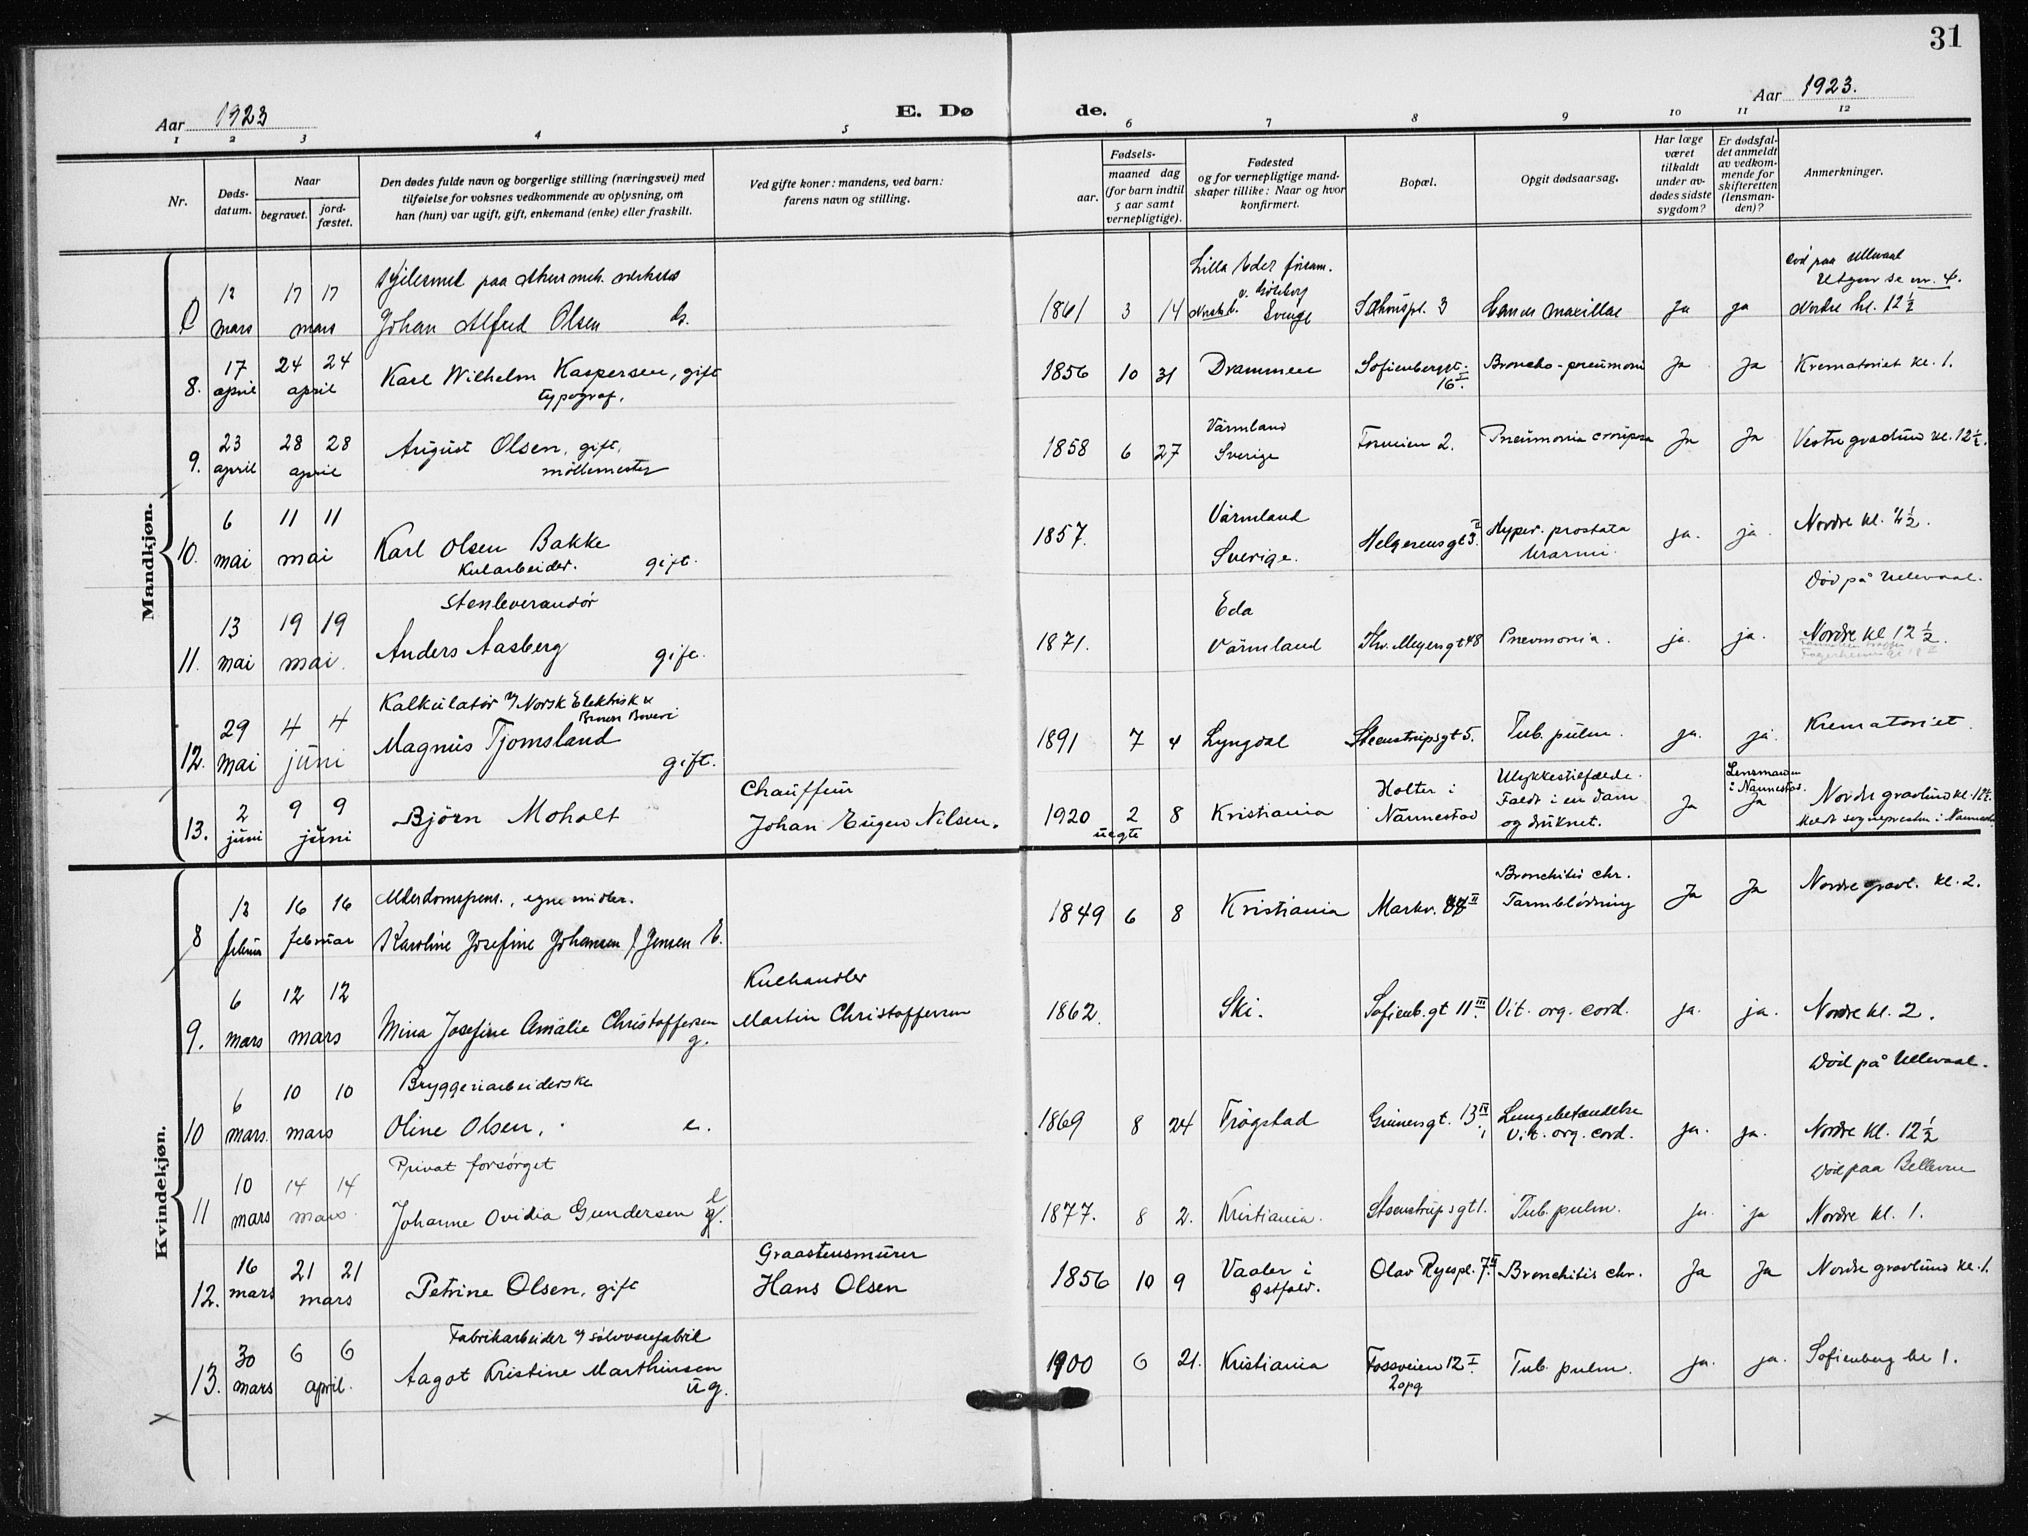 31
Aar 1923
E. Dø
de.
Aar 1923.
1 2 3 4 5 6 7 8 9 10 11 12
Nr.
Døds-
datum.
Naar
begravet.
jord-
fæstet.
Den dødes fulde navn og borgerlige stilling (næringsvei) med
tilføielse for voksnes vedkommende av oplysning, om
han (hun) var ugift, gift, enkemand (enke) eller fraskilt.
Ved gifte koner: mandens, ved barn:
farens navn og stilling.
Fødsels-
aar.
maaned dag
(for barn indtil
5 aar samt
vernepligtige).
Fødested
og for vernepligtige mand-
skaper tillike: Naar og hvor
konfirmert.
Bopæl.
Opgit dødsaarsag.
Har læge
været
tilkaldt
under av-
dødes sidste
sygdom?
Er dødsfal-
det anmeldt
av vedkom-
mende for
skifteretten
(lensman-
den)?
Anmerkninger.
Mandkjøn.
12 mars
17 17 mars
Johan Alfred Olsen
1861 3 14
Lilla Eder
Sverige
3
ja ja
Død paa Ullevaal
Nordre kl. 12 1/2
8.
17 april
24 24 april
Karl Wilhelm Kaspersen, gift
typograf.
1856 10 31
Drammen
Sofienberggt.
16 I.
Broncho-pneumoni
Ja Ja
Krematoriet kl. 1.
9.
23 april
28 28 april
August Olsen, gift,
møllemester
1858 6 27
Värmland
Sverige
Torveien 2.
Pneumonia crouposa
Ja Ja
Vestre gravlund kl. 12 1/2.
10.
6 mai
11 11 mai
Karl Olsen Bakke
Kularbeider. gift.
1857.
Värmland
Sverige.
Helgesensgt 3. II
Hyper. prostata
Uræmi.
ja. ja.
Nordre kl.
11.
13 mai
19 19 mai.
Stenleverandør
Anders Aasberg gift.
1871.
Eda
Värmland
Thv. Meyersgt 48
Pnevmonia.
ja. ja.
Død på Ullevaal.
Nordre kl 12 1/2.
12.
29 mai
4 4 juni
Kalkulatør v/ Norsk Elektrisk &
Brown Boveri
Magnus Tjomsland
gift.
1891 7 4
Lyngdal
Steenstrupsgt 5.
Tub. pulm.
ja. ja.
Krematoriet.
13.
2 juni
9 9 juni
Bjørn Moholt
Chauffeur
Johan Eugen Nilsen.
1920 2 8
uegte
Kristiania
Holter i
Nannestad
Ulykkestilfælde.
Faldt i en dam
og druknet.
Ja
Lensmanden
i Nannestad.
Ja
Nordre gravlund kl. 12 1/2.
Meldt sognepresten i Nannestad
Kvindekjøn.
8
12 februar
16 16 februar
Alderdomspens., egne midler.
Karoline Josefine Johansen f. Jensen E.
1849 6 8
Kristiania
Markv. II
Bronchitis chr.
Tarmblødning
Ja Ja
Nordre gravl. kl. 2.
9.
6 mars
12 12 mars
Mina Josefine Amalie Christoffersen
g.
Kulhandler
Martin Christoffersen
1862.
Ski.
Sofienb.gt 11 III.
Vit. org. cord.
ja. ja.
Nordre kl. 2.
10
6 mars.
10 10 mars
Bryggeriarbeiderske
Oline Olsen. e.
1869 8 24
Trøgstad
Grünersgt. 13 IV
i
Lungebetændelse
Vit. org. cord.
ja. ja.
Død på Ullevaal.
Nordre kl. 12 1/2
11
10 mars
14 14 mars.
Privat forsørget
Johanne Ovidia Gundersen
1877. 8 2.
Kristiania.
Steenstrupsgt 1.
Tub. pulm.
ja. ja
Død paa Bellevue
Nordre kl. 1.
12.
16 mars
21 21 mars
Petrine Olsen, gift
Graastensmurer
Hans Olsen
1856 10 9
Vaaler i
Østfold.
Olav Ryespl. 7. II
Bronchitis chr.
Ja Ja
Nordre gravlund kl. 1.
13.
30 mars
6 6 april.
Fabrikarbeider v/ sølvvarefabrik
Aagot Kristine Marthinsen
ug.
1900 6 21.
Kristiania
Fossveien 12 I
2 opg
Tub. pulm.
ja. ja.
Sofienberg kl 1.